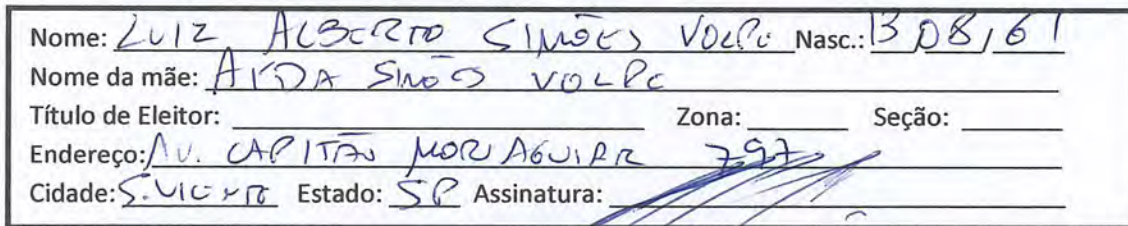 Nome: LUIZ ALBERTO SIMÕES VOLPE Nasc.: 13/08/61
Nome da mãe: AÍDA SIMÕES VOLPE
Título de Eleitor: Zona: Seção:
Endereço: AV. CAPITÃO MOR AGUIAR 797
Cidade: S. VICENTE Estado: SP Assinatura: